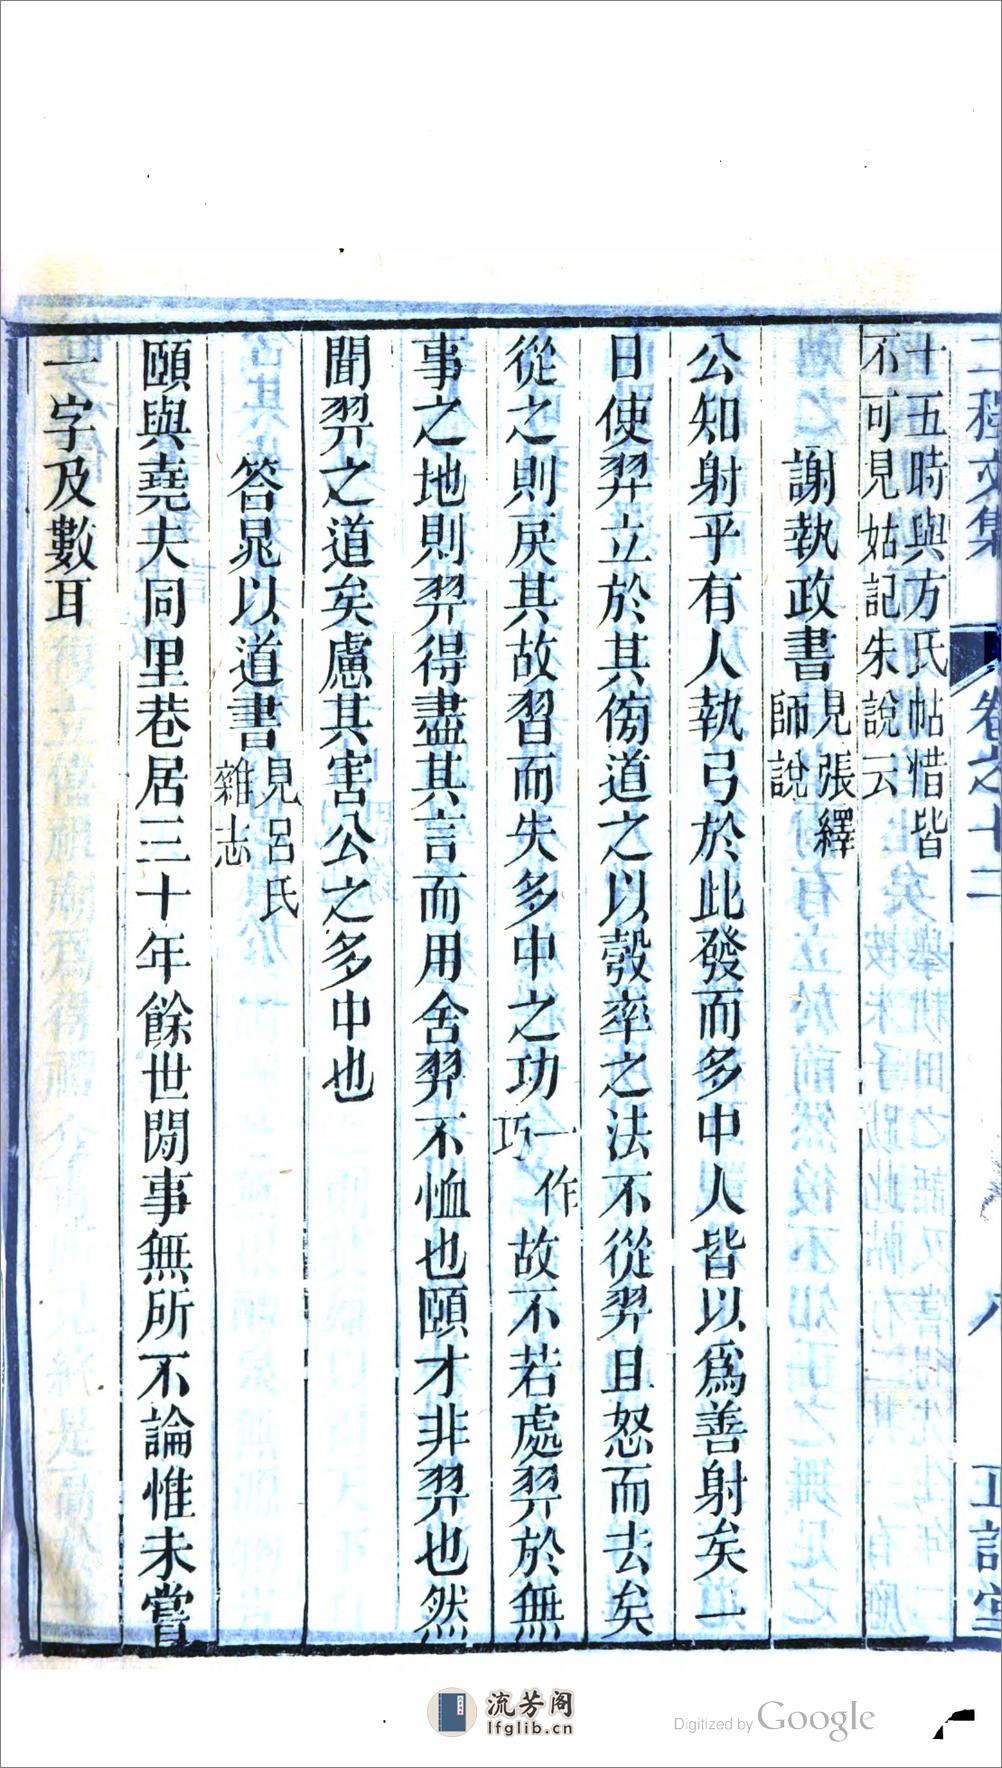 二程文集 卷之十二 八 正誼堂
十五時與方氏帖惜皆
不可見姑記朱說云
謝執政書見張繹師說
公知射乎有人執弓於此發而多中人皆以爲善射矣一
日使羿立於其傍道之以彀率之法不從羿且怒而去矣
從之則戾其故習而失多中之功一作巧故不若處羿於無
事之地則羿得盡其言而用舍羿不恤也頤才非羿也然
聞羿之道矣慮其害公之多中也
答晁以道書見呂氏雜志
頤與堯夫同里巷居三十年餘世閒事無所不論惟未嘗
一字及數耳
流芳阁
lfglib.cn
Digitized by Google